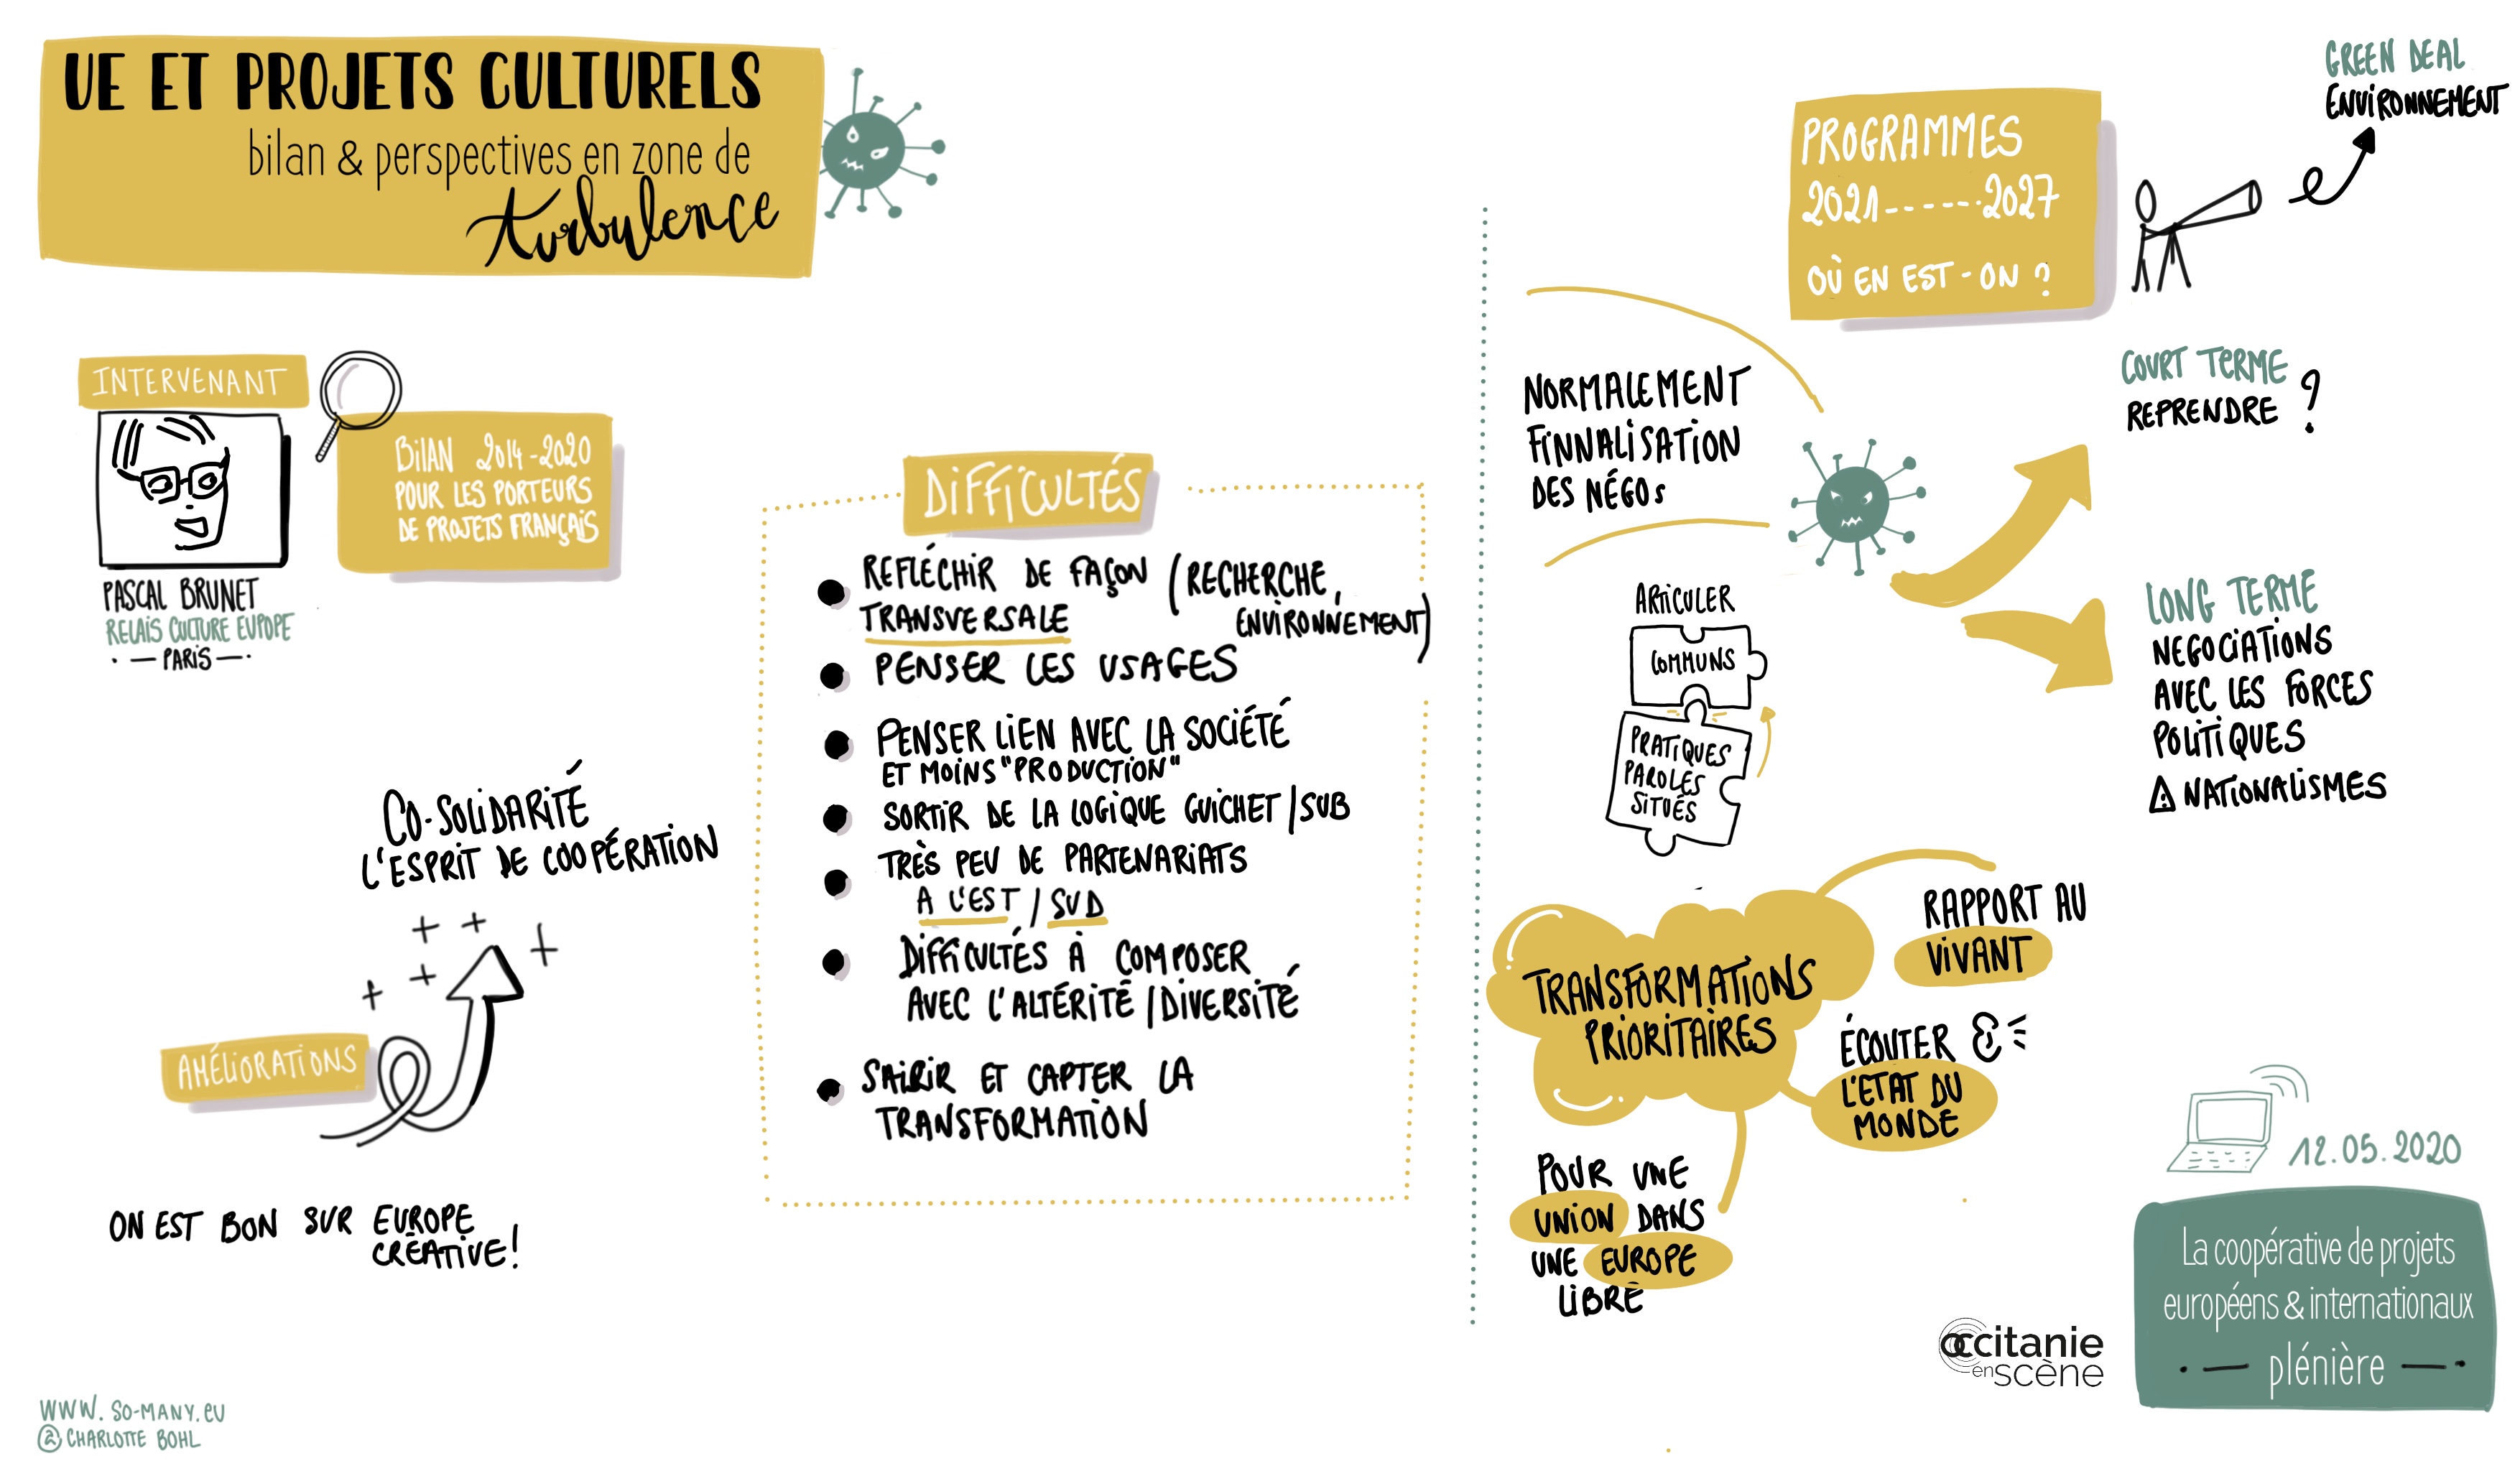 UE ET PROJETS CULTURELS
bilan & perspectives en zone de
turbulence
INTERVENANT
PASCAL BRUNET
RELAIS CULTURE EUROPE
PARIS
BILAN 2014-2020
POUR LES PORTEURS
DE PROJETS FRANÇAIS
CO-SOLIDARITÉ
L'ESPRIT DE COOPÉRATION
AMÉLIORATIONS
ON EST BON SUR EUROPE
CRÉATIVE!
DIFFICULTÉS
REFLÉCHIR DE FAÇON (RECHERCHE,
TRANSVERSALE ENVIRONNEMENT)
PENSER LES USAGES
PENSER LIEN AVEC LA SOCIÉTÉ
ET MOINS "PRODUCTION"
SORTIR DE LA LOGIQUE GUICHET/SUB
TRÈS PEU DE PARTENARIATS
A L'EST / SUD
DIFFICULTÉS À COMPOSER
AVEC L'ALTÉRITÉ/DIVERSITÉ
SAISIR ET CAPTER LA
TRANSFORMATION
PROGRAMMES
2021------2027
OÙ EN EST-ON ?
GREEN DEAL
ENVIRONNEMENT
NORMALEMENT
FINNALISATION
DES NÉGOS
COURT TERME
REPRENDRE ?
LONG TERME
NEGOCIATIONS
AVEC LES FORCES
POLITIQUES
⚠ NATIONALISMES
ARTICULER
COMMUNS
PRATIQUES
PAROLES
SITUÉS
TRANSFORMATIONS
PRIORITAIRES
RAPPORT AU
VIVANT
ÉCOUTER
L'ETAT DU
MONDE
POUR UNE
UNION DANS
UNE EUROPE
LIBRE
12.05.2020
La coopérative de projets
européens & internationaux
plénière
occitanie
en scène
WWW.SO-MANY.EU
@ CHARLOTTE BOHL